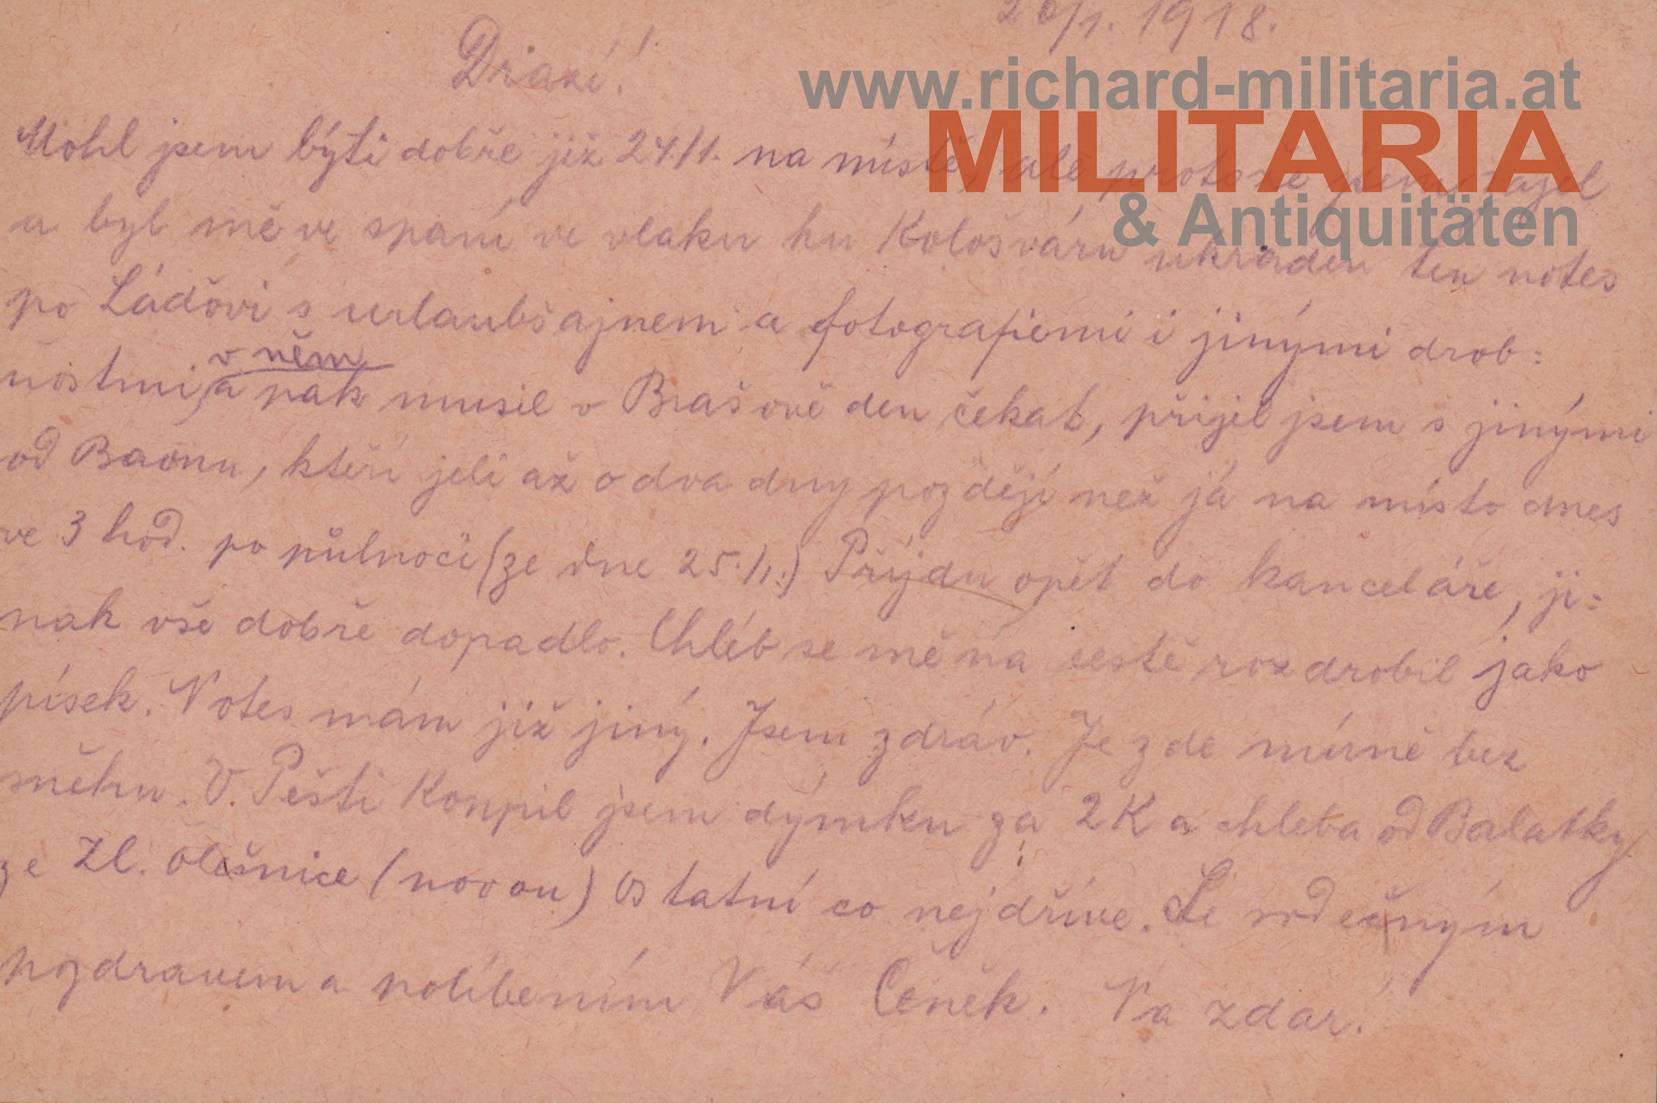 26/1. 1918.
Drazí!
www.richard-militaria.at
MILITARIA
& Antiquitäten
Mohl jsem býti dobře již 24./1. na místě, ale protože jsem
a byl mě ve spaní ve vlaku ku Kološváru ukraden ten notes
po Láďovi s urlaubšajnem a fotografiemi i jinými drob:
nostmi, v něm a pak musil v Brašově den čekat, přijel jsem s jinými
od Baonu, kteří jeli až o dva dny později než já na místo dnes
ve 3 hod. po půlnoci (ze dne 25./1.) Přijdu opět do kanceláře, ji:
nak vše dobře dopadlo. Chléb se mě na cestě rozdrobil jako
písek. Notes mám již jiný. Jsem zdráv. Je zde mírně bez
sněhu. V Pešti koupil jsem dýmku za 2K a chleba od Balatky
ze Zl. Olešnice (novou) Ostatní co nejdříve. Se srdečným
pozdravem a políbením Váš Čeněk. Na zdar!